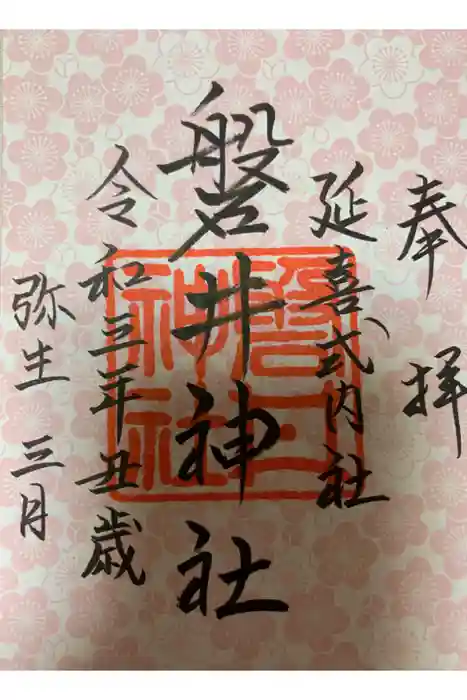 奉拝
延喜式内社
磐井神社
令和三年丑歳
弥生 三月
磐井神社